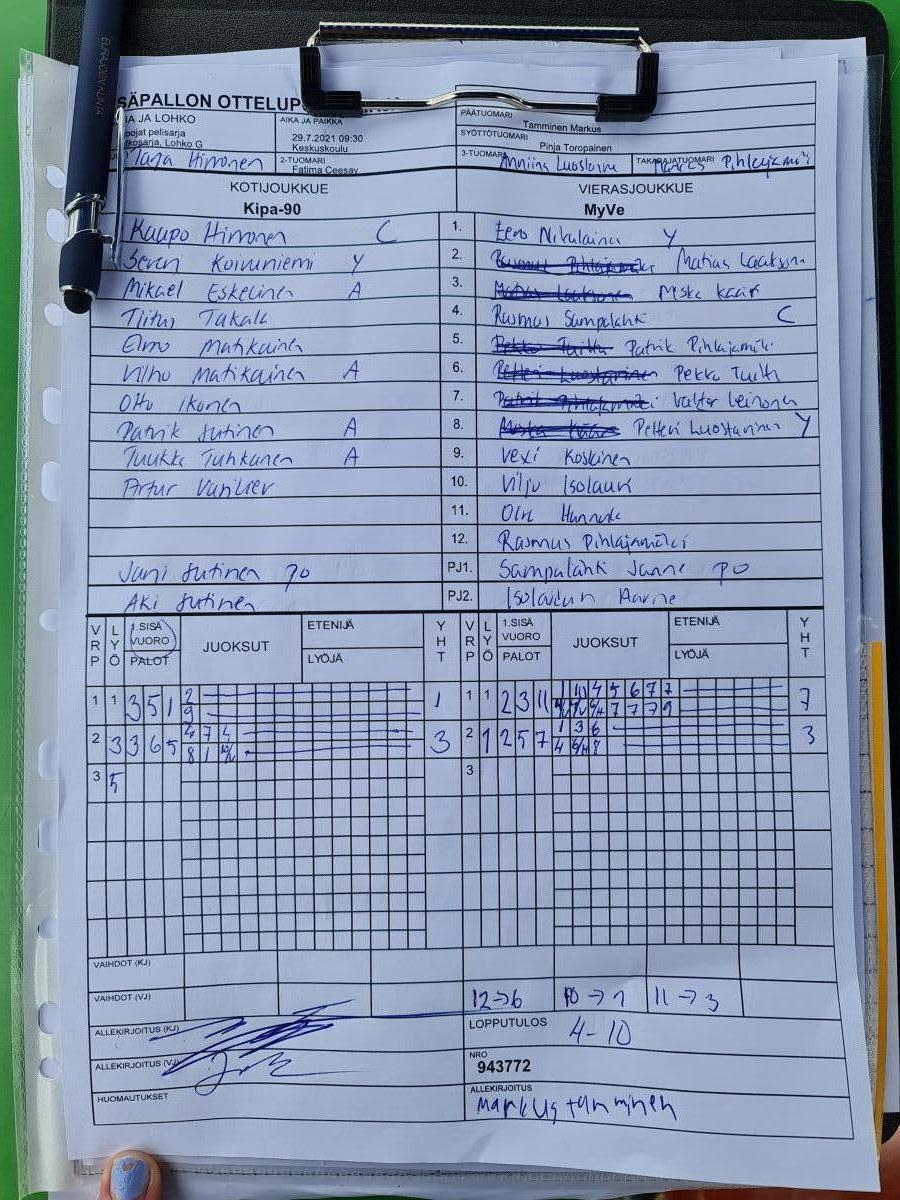 EURAJOEN KUNTA
SÄPALLON OTTELUP
JA LOHKO
AIKA JA PAIKKA
PÄÄTUOMARI
Tamminen Markus
pojat pelisarja
Lohko G
29.7.2021 09:30
Keskuskoulu
SYÖTTÖTUOMARI
Pinja Toropainen
Hirvonen
2-TUOMARI
Fatima Ceesay
3-TUOMARI
TAKARAJATUOMARI
Pihlajamäki
KOTIJOUKKUE
VIERASJOUKKUE
Kipa-90
MyVe
Kaapo Hirvonen C
1.
Eero Nikulainen Y
Severi Koivuniemi Y
2.
Rasmus Pihlajamäki Matias Laaksonen
Mikael Eskelinen A
3.
Matias Laaksonen
Tiitus Takala
4.
Rasmus Sampalahti C
Elmo Matikainen
5.
Patrik Pihlajamäki
Vilho Matikainen A
6.
Petteri Luostarinen Pekka
Otto Ikonen
7.
Patrik Pihlajamäki Valtter Leinonen
Patrik Jutinen A
8.
Petteri Luostarinen Y
Tuukka Tuhkanen A
9.
Veli Koskinen
Artur
10.
Viljo Isolauri
11.
12.
Rasmus Pihlajamäki
Jani Jutinen po
PJ1.
Sampalahti Janne po
Aki Jutinen
PJ2.
VRP LYÖ 1.SISÄ VUORO PALOT JUOKSUT ETENIJÄ LYÖJÄ YHT
VRP LYÖ 1.SISÄ VUORO PALOT JUOKSUT ETENIJÄ LYÖJÄ YHT
1 1 3 5 1 2 1
9
1 1 2 3 11 1 10 4 5 6 7 7 7
7 7 7 9
2 3 3 6 5 3
8 1
2 1 2 5 7 1 3 6 3
4 8
3 5
3
VAIHDOT (KJ)
VAIHDOT (VJ)
12→6 10→1 11→3
ALLEKIRJOITUS (KJ)
LOPPUTULOS
4-10
ALLEKIRJOITUS (VJ)
NRO
943772
HUOMAUTUKSET
ALLEKIRJOITUS
Markus tamminen